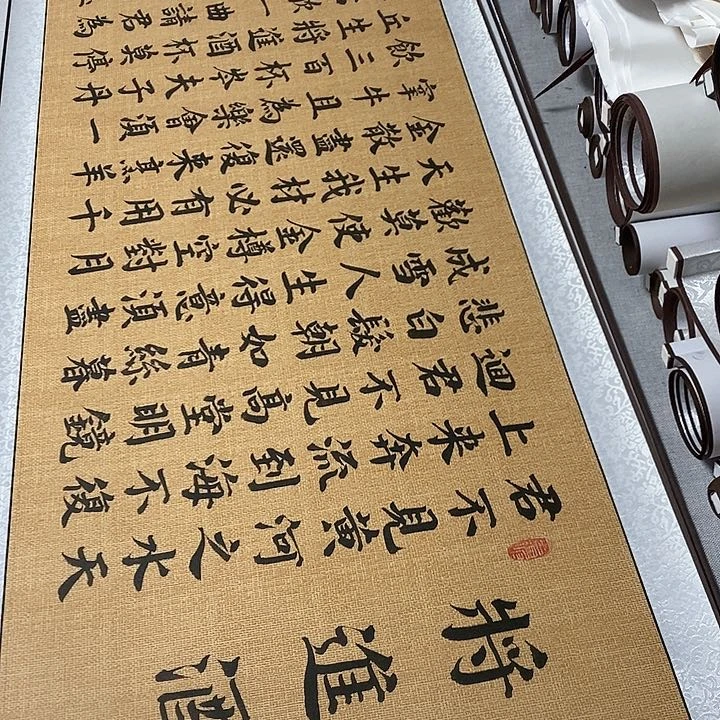 將進酒
君不見黃河之水天
上来奔流到海不復
迴君不見高堂明鏡
悲白髮朝如青絲暮
成雪人生得意須盡
歡莫使金樽空對月
天生我材必有用千
金散盡還復来烹羊
宰牛且為樂會須一
飲三百杯岑夫子丹
丘生將進酒杯莫停
一曲請君為